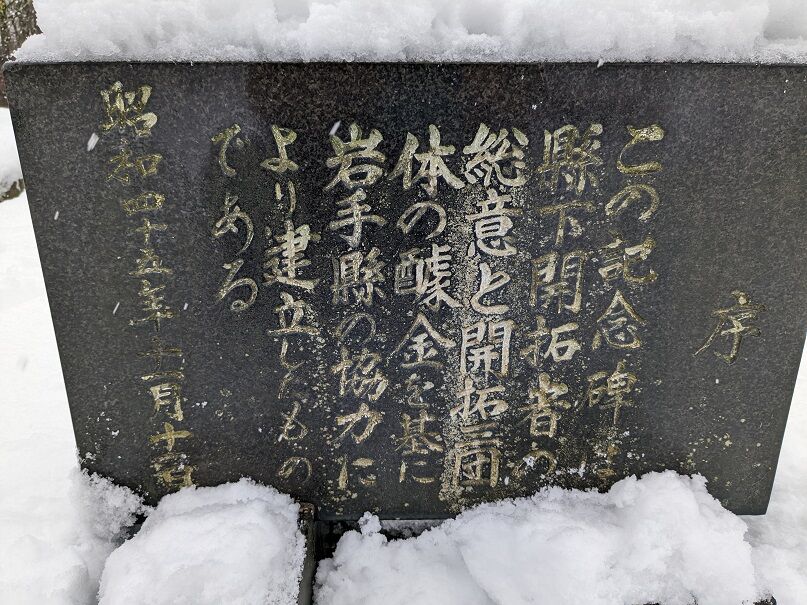 序
この記念碑は
縣下開拓者の
総意と開拓三団
体の醵金を基に
岩手縣の協力に
より建立したもの
である
昭和四十五年十一月十日